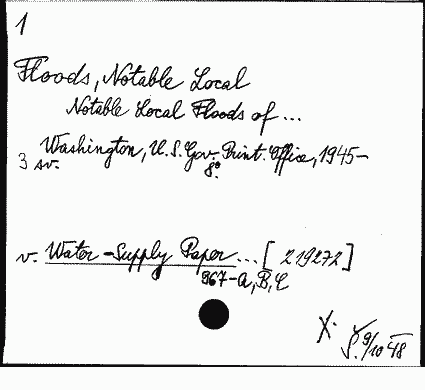 1
Floods, Notable Local
Notable Local Floods of ...
Washington, U.S. Gov. Print. Office, 1945-
3 sv. 8°
v. Water-Supply Paper ... [219272]
967-A, B, C
X.
9/10 48